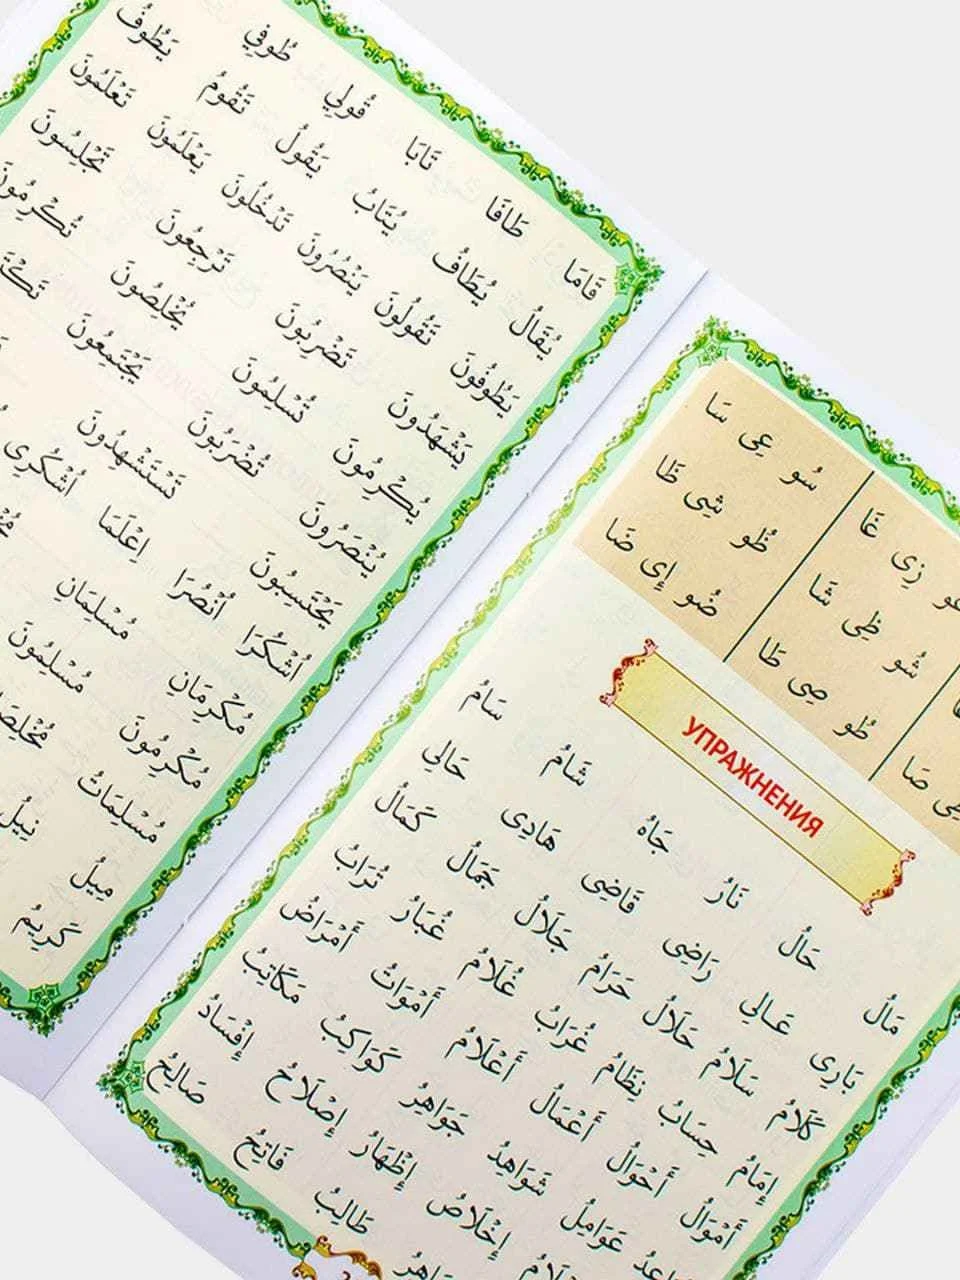 قَامَا طَافَا تَابَا قُولِي طُوفِي
يُقَالُ يُطَافُ يُتَابُ يَقُولُ تَقُومُ يَطُوفُ
يَطُوفُونَ تَقُولُونَ يَنْصُرُونَ تَدْخُلُونَ يَعْلَمُونَ تَعْلَمُونَ
يَشْهَدُونَ تَضْرِبُونَ تَرْجِعُونَ تَجْلِسُونَ
يُكْرِمُونَ تُسْلِمُونَ يُخْلِصُونَ تُكْرِمُونَ
يُنْصَرُونَ تُضْرَبُونَ يَجْتَمِعُونَ
يَحْتَسِبُونَ تَسْتَشْهِدُونَ
اُشْكُرَا اُنْصُرَا اِعْلَمَا اُشْكُرِى
مُكْرِمَانِ مُسْلِمَانِ
مُكْرِمُونَ مُسْلِمُونَ
مُسْلِمَاتُ
مِيلُ نِيلُ
كَرِيمُ
زِى غَا سُو عِى سَا
شُو ظِى شَا ظُو شِى ظَا
صَا طُو صِى طَا ضُو إِى ضَا
УПРАЖНЕНИЯ
مَالُ حَالُ نَارُ جَاهُ شَامُ سَامُ
بَادِى عَالِى رَاضِى قَاضِى هَادِى حَالِى
كَلَامُ سَلَامُ حَلَالُ حَرَامُ جَلَالُ جَمَالُ كَمَالُ
إِمَامُ حِسَابُ نِظَامُ غُرَابُ غُلَامُ غُبَارُ تُرَابُ
أَمْوَالُ أَحْوَالُ أَعْمَالُ أَعْلَامُ أَمْوَاتُ أَمْرَاضُ
عَوَامِلُ شَوَاهِدُ جَوَاهِرُ كَوَاكِبُ مَكَاتِبُ
إِخْلَاصُ إِظْهَارُ إِصْلَاحُ إِفْسَادُ
طَالِبُ فَاتِحُ صَالِحُ